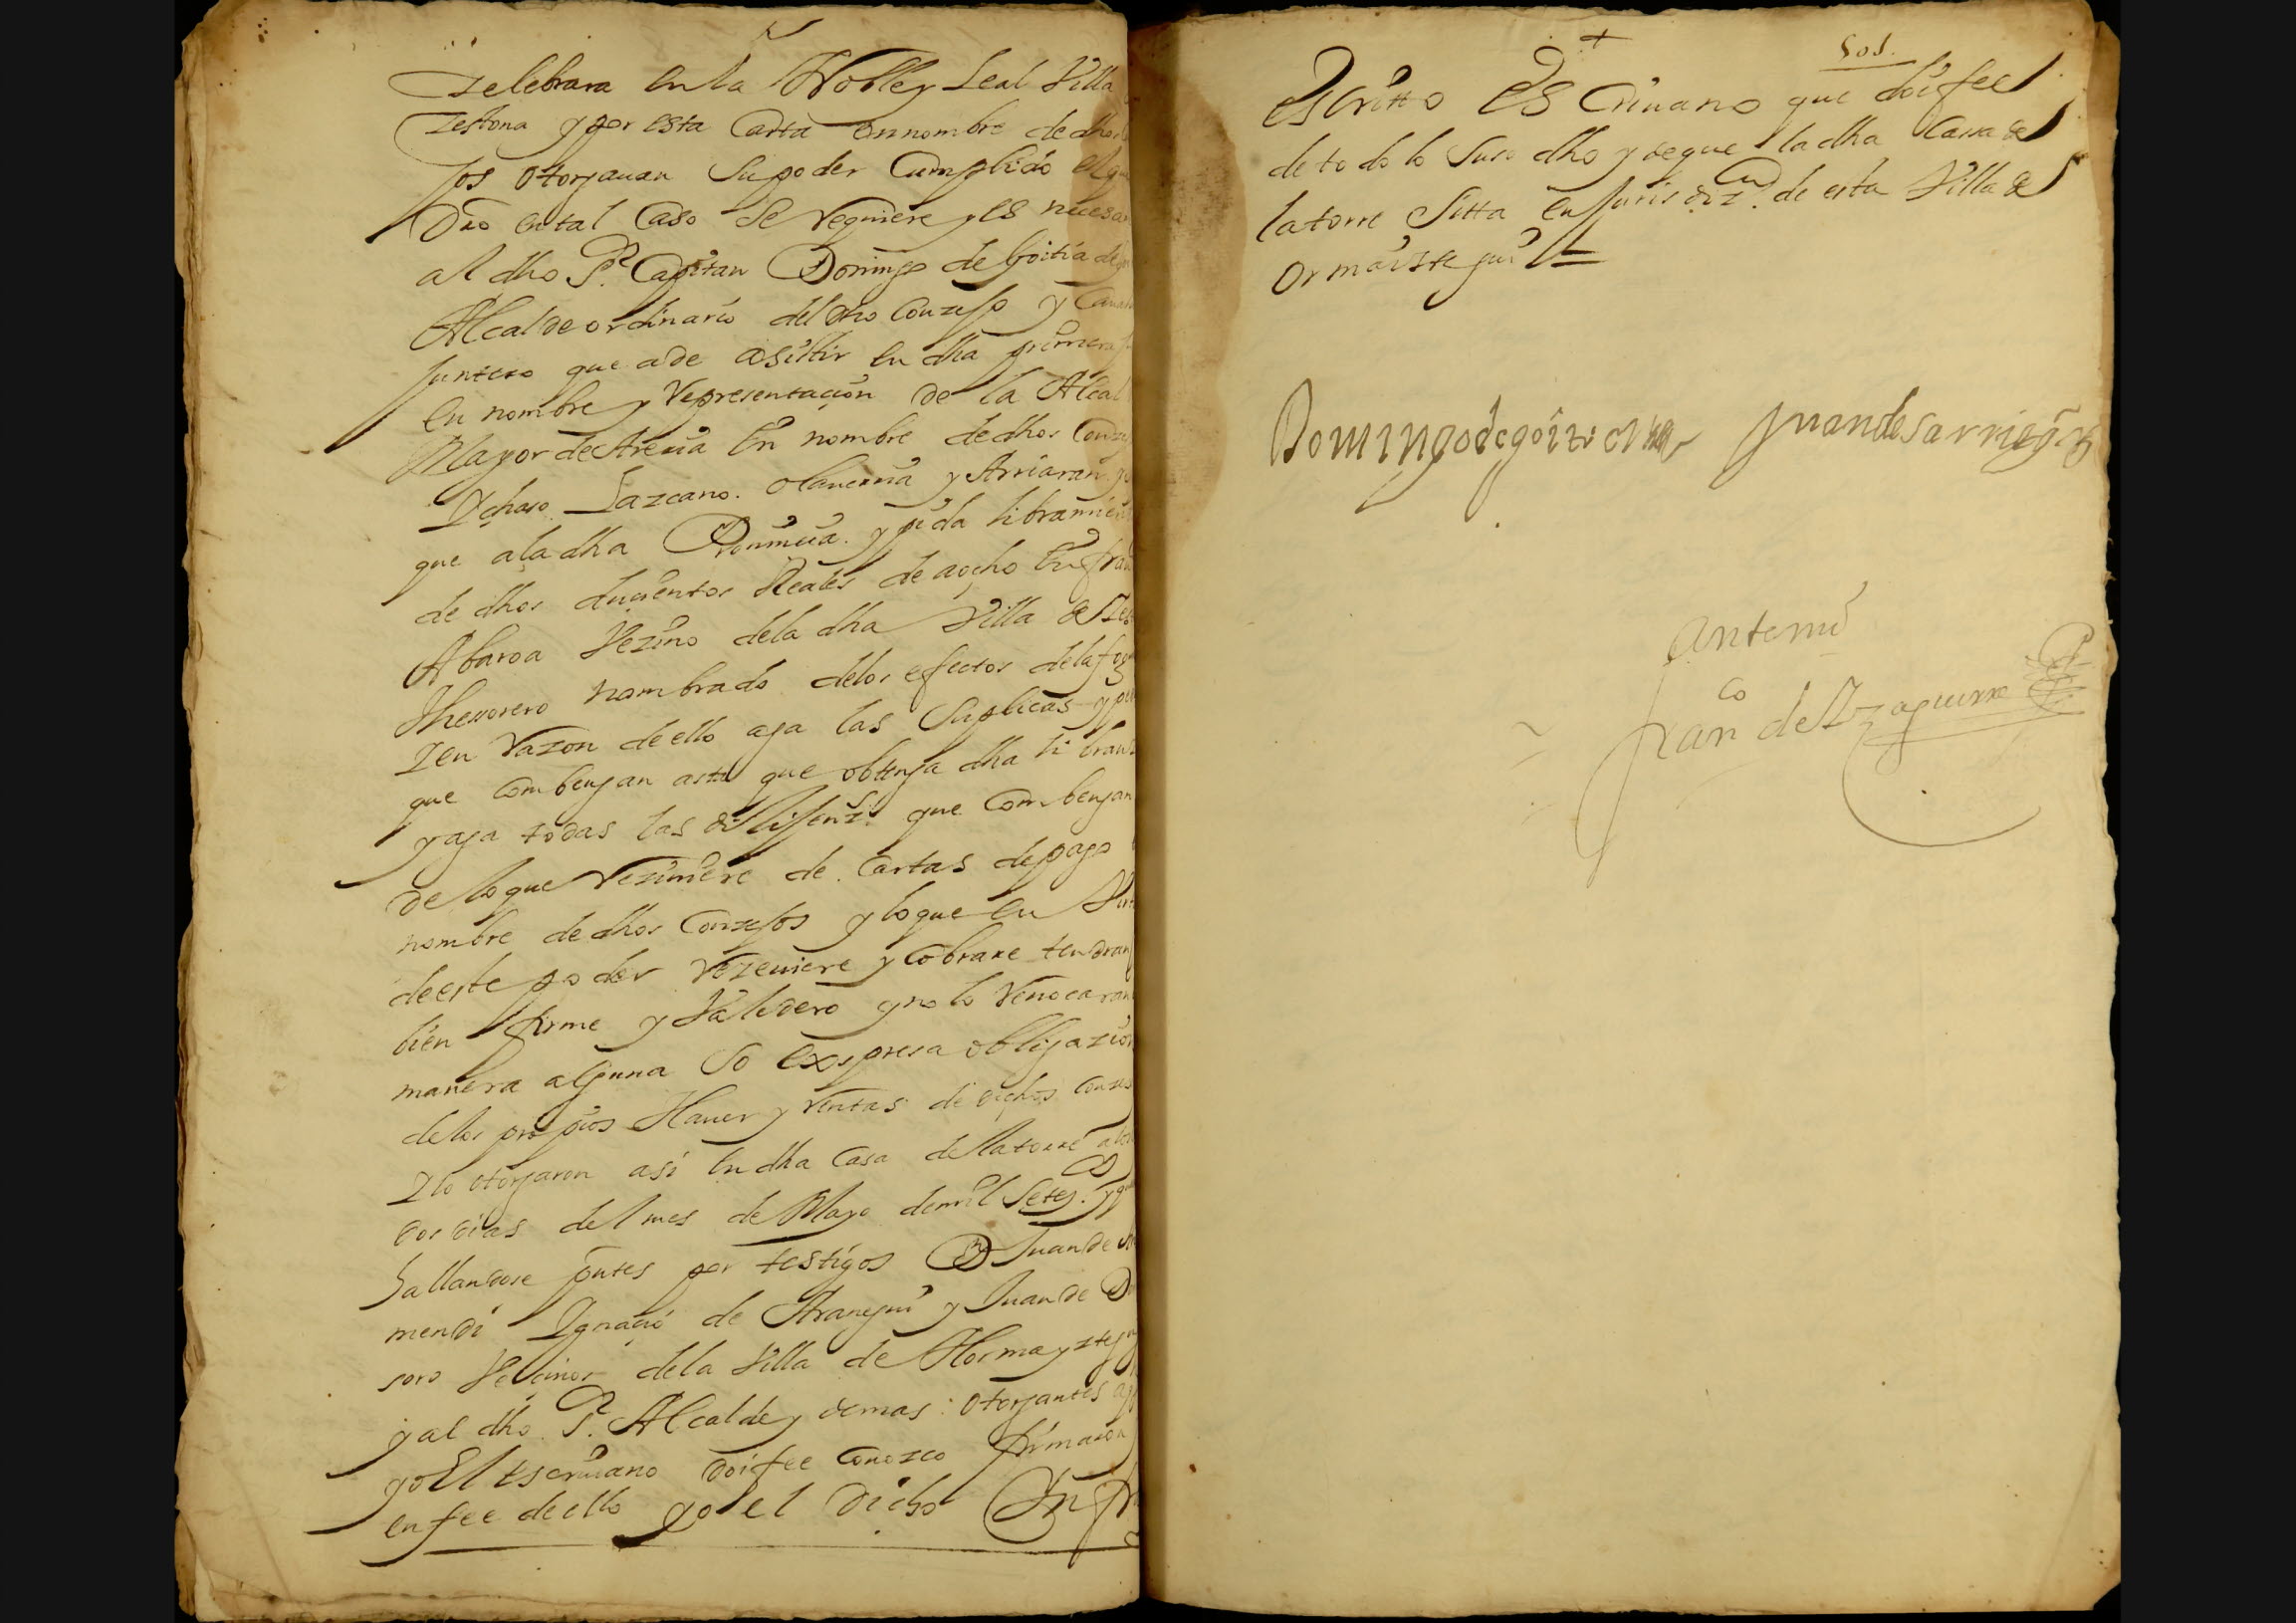 Zelebrara en la Noble y Leal Villa
Zestona y por esta Carta en nombre de dhos
jos otorgauan su poder Cumplido el que
Dro en tal Caso se requiere y es nezesa
al dho Sr. Capitan Domingo de Goitia
Alcalde ordinario del dho Conzejo y Caua
juntero que a de asistir en dha primera
en nombre y representaçion de la Alcal
Mayor de Areria en nombre de dhos Conze
Ychaso Lazcano. Olauerria y Arriaran
que a la dha Prouinçia. y pida libramien
de dhos duçientos Reales de a ocho en fran
Abaroa Vezino de la dha Villa de Zes
Thessorero nombrado de los efectos de la fog
Y en razon de ello aga las Suplicas y pe
que combengan asta que obtenga dha libran
y aga todas las diligenz.s que Combengan
de lo que reziuiere de Cartas de pago
nombre de dhos Conzejos y lo que en Virt
de este poder rezeuiere y Cobrare tendran
bien firme y Valedero y no lo reuocaran
manera alguna so expresa obligazion
de los propios Hauer y rentas de dichos Conze
Y lo otorgaron asi en dha Casa de la torre a
dos dias del mes de Mayo de mil Setez.s y
hallandose pntes por testigos Dn Juan de
mendi Ygnaçio de Aranegui y Juan de
soro Veçinos de la Villa de Hormayzteg
y al dho Sr. Alcalde y demas otorgantes
yo El escriuano doi fee Conozco firmaron
en fee de ello yo el dicho Ynfra
+
501.
escritto esCriuano que doi fee
de todo lo Suso dho y de que la dha Cassa de
la torre Sitta en Jurisdiz.on de esta Villa de
ormaiztegui
Domingo de goitia Juan de Sarriegui
Ante mi
Franco de Yzaguirre